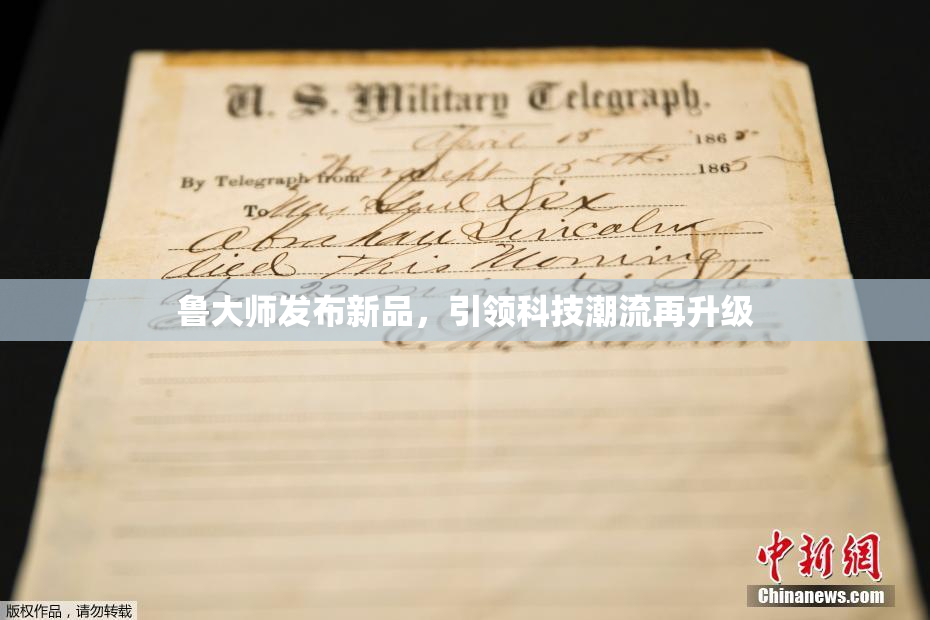 U. S. Military Telegraph.
April 15 1865
By Telegraph from War Dept 15th 1865
To Maj Genl Dix
Abraham Lincoln
died this Morning
at 22 minutes after
鲁大师发布新品，引领科技潮流再升级
E. M. Stanton
中新网
Chinanews.com
版权作品，请勿转载